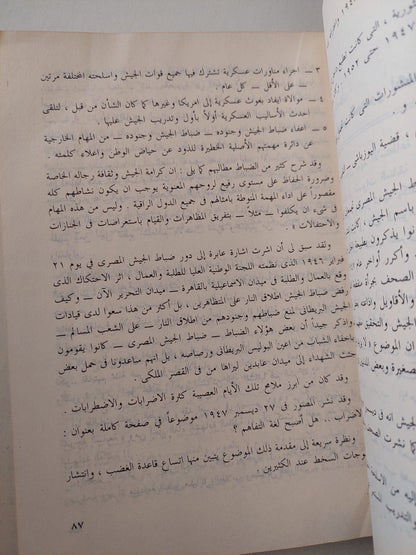 ٣ — اجراء مناورات عسكرية تشترك فيها جميع قوات الجيش واسلحته المختلفة مرتين
— على الأقل — كل عام .
٤ — موالاة ايفاد بعوث عسكرية إلى امريكا وغيرها كما كان الشأن من قبل ، لتلقى
احدث الأساليب العسكرية أولاً بأول وتدريب الجيش عليها .
٥ — اعفاء ضباط الجيش وجنوده — ضباط الجيش وجنوده — من المهام الخارجة
عن دائرة مهمتهم الأصلية للذود عن حياض الوطن واعلاء كلمته .
وقد شرح كثير من الضباط مطالبهم كما يلى : ان كرامة الجيش وثقافة رجاله الخاصة
وضرورة الحفاظ على مستوى رفيع لروحهم المعنوية يوجب ان يكون نشاطهم كله
مقصوراً على اداء المهمة المنوطة بامثالهم فى جميع الدول الراقية . وليس من هذه المهام
فى شىء ان يكلفوا — مثلاً — بتفريق المظاهرات والقيام باستعراضات فى الجنازات
والاحتفالات ؛
ولقد سبق لى أن اشرت اشارة عابرة إلى دور ضباط الجيش المصرى فى يوم ٢١
فبراير ١٩٤٦ الذى نظمته اللجنة الوطنية العليا للطلبة والعمال ، اثر الاحتكاك الذى
وقع بالعمال والطلبة فى ميدان الاسماعيلية بالقاهرة — ميدان التحرير الآن — وكيف
رفض ضباط الجيش اطلاق النار على المتظاهرين ، بل أكثر من هذا سعوا لدى قيادات
الجيش البريطانى لمنع ضباطهم وجنودهم من اطلاق النار — على الشعب المسالم —
واذكر جيداً أن بعض هؤلاء الضباط — ضباط الجيش المصرى — كانوا يقومون
باخفاء الشباب من اعين البوليس البريطانى ورصاصه ، بل انهم ساعدونا فى حمل بعض
جثث الشهداء إلى ميدان عابدين ليراها من فى القصر الملكى .
وقد كان من ابرز ملامح تلك الأيام العصيبة كثرة الاضرابات والاضطرابات .
وقد نشر المصور فى ٢٧ ديسمبر ١٩٤٧ موضوعاً فى صفحة كاملة بعنوان :
الاضراب .. هل أصبح لغة التفاهم ؟
ونظرة سريعة إلى مقدمة ذلك الموضوع يتبين منها اتساع قاعدة الغضب ، وانتشار
موجات السخط عند الكثيرين .
٨٧